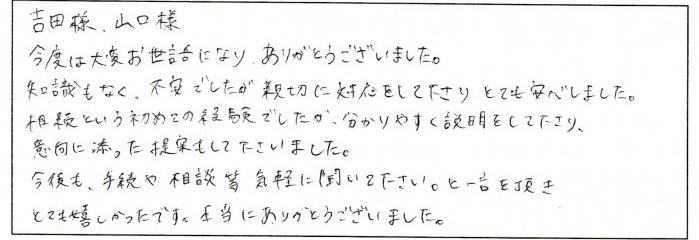 吉田様、山口様
今度は大変お世話になり、ありがとうございました。
知識もなく、不安でしたが親切に対応をして下さりとても安心しました。
相続という初めての経験でしたが、分かりやすく説明をして下さり、
意向に添った提案もして下さいました。
今後も、手続や相談等気軽に聞いて下さい。と一言を頂き
とても嬉しかったです。本当にありがとうございました。